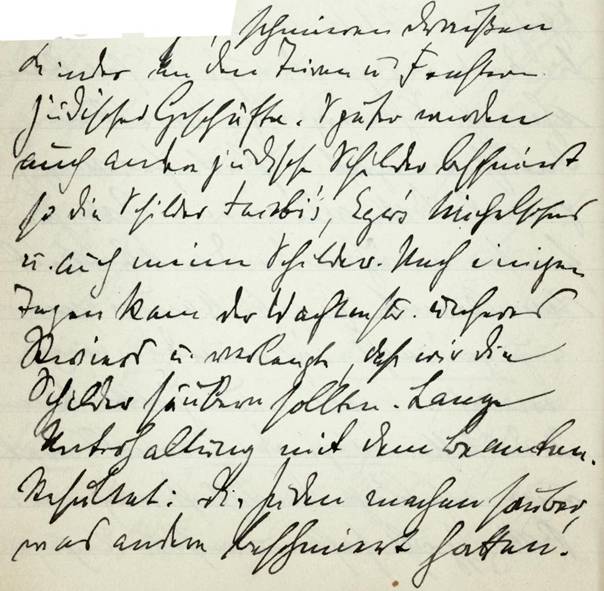 schmieren draußen
Kinder an den Türen u Fenstern
jüdischer Geschäfte. Später werden
auch andere jüdische Schilder beschmiert
so die Schilder
u. auch meine Schilder. Nach einigen
Tagen kam der Wachtmstr. unseres
Reviers u. verlangte, daß wir die
Schilder säubern sollten. Lange
Unterhaltung mit dem Beamten.
Resultat: die Juden machen sauber,
was andere beschmiert hatten.